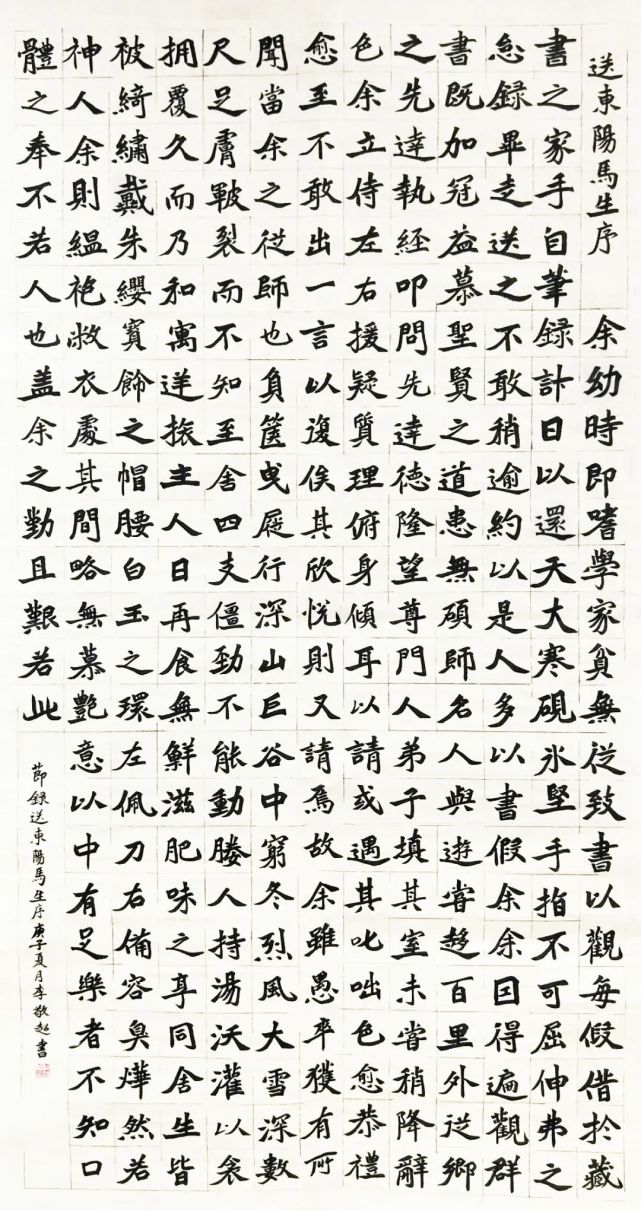 送東陽馬生序
余幼時即嗜學家貧無從致書以觀每假借於藏
書之家手自筆錄計日以還天大寒硯冰堅手指不可屈伸弗之
怠錄畢走送之不敢稍逾約以是人多以書假余余因得遍觀群
書既加冠益慕聖賢之道患無碩師名人與遊嘗趨百里外從鄉
之先達執經叩問先達德隆望尊門人弟子填其室未嘗稍降辭
色余立侍左右援疑質理俯身傾耳以請或遇其叱咄色愈恭禮
愈至不敢出一言以復俟其欣悅則又請焉故余雖愚卒獲有所
聞當余之從師也負篋曳屣行深山巨谷中窮冬烈風大雪深數
尺足膚皸裂而不知至舍四支僵勁不能動媵人持湯沃灌以衾
拥覆久而乃和寓逆旅主人日再食無鮮滋肥味之享同舍生皆
被綺繡戴朱纓寶飾之帽腰白玉之環左佩刀右備容臭燁然若
神人余則縕袍敝衣處其間略無慕艷意以中有足樂者不知口
體之奉不若人也蓋余之勤且艱若此
節錄送東陽馬生序庚子夏月李敬書